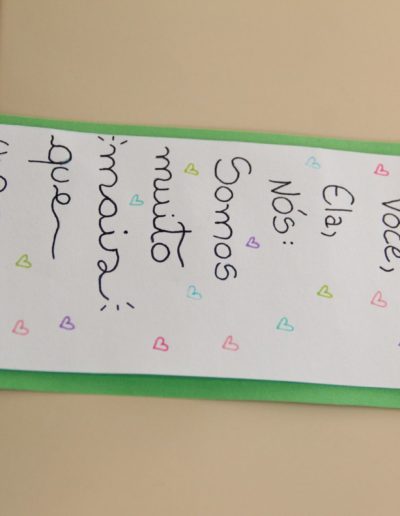 Você,
Ela,
Nós:
Somos
muito
mais
que